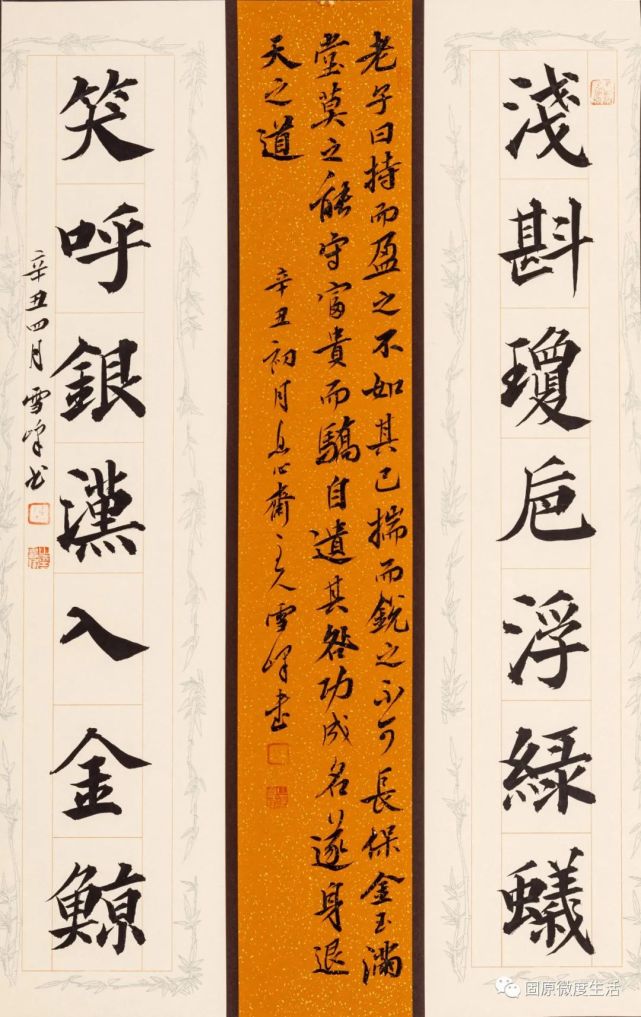 淺斟瓊卮浮緑蟻
老子曰持而盈之不如其已揣而銳之不可長保金玉滿
堂莫之能守富貴而驕自遺其咎功成名遂身退
天之道
辛丑初月息心齋主人雪峰書
笑呼銀漢入金鯨
辛丑四月雪峰書
固原微度生活